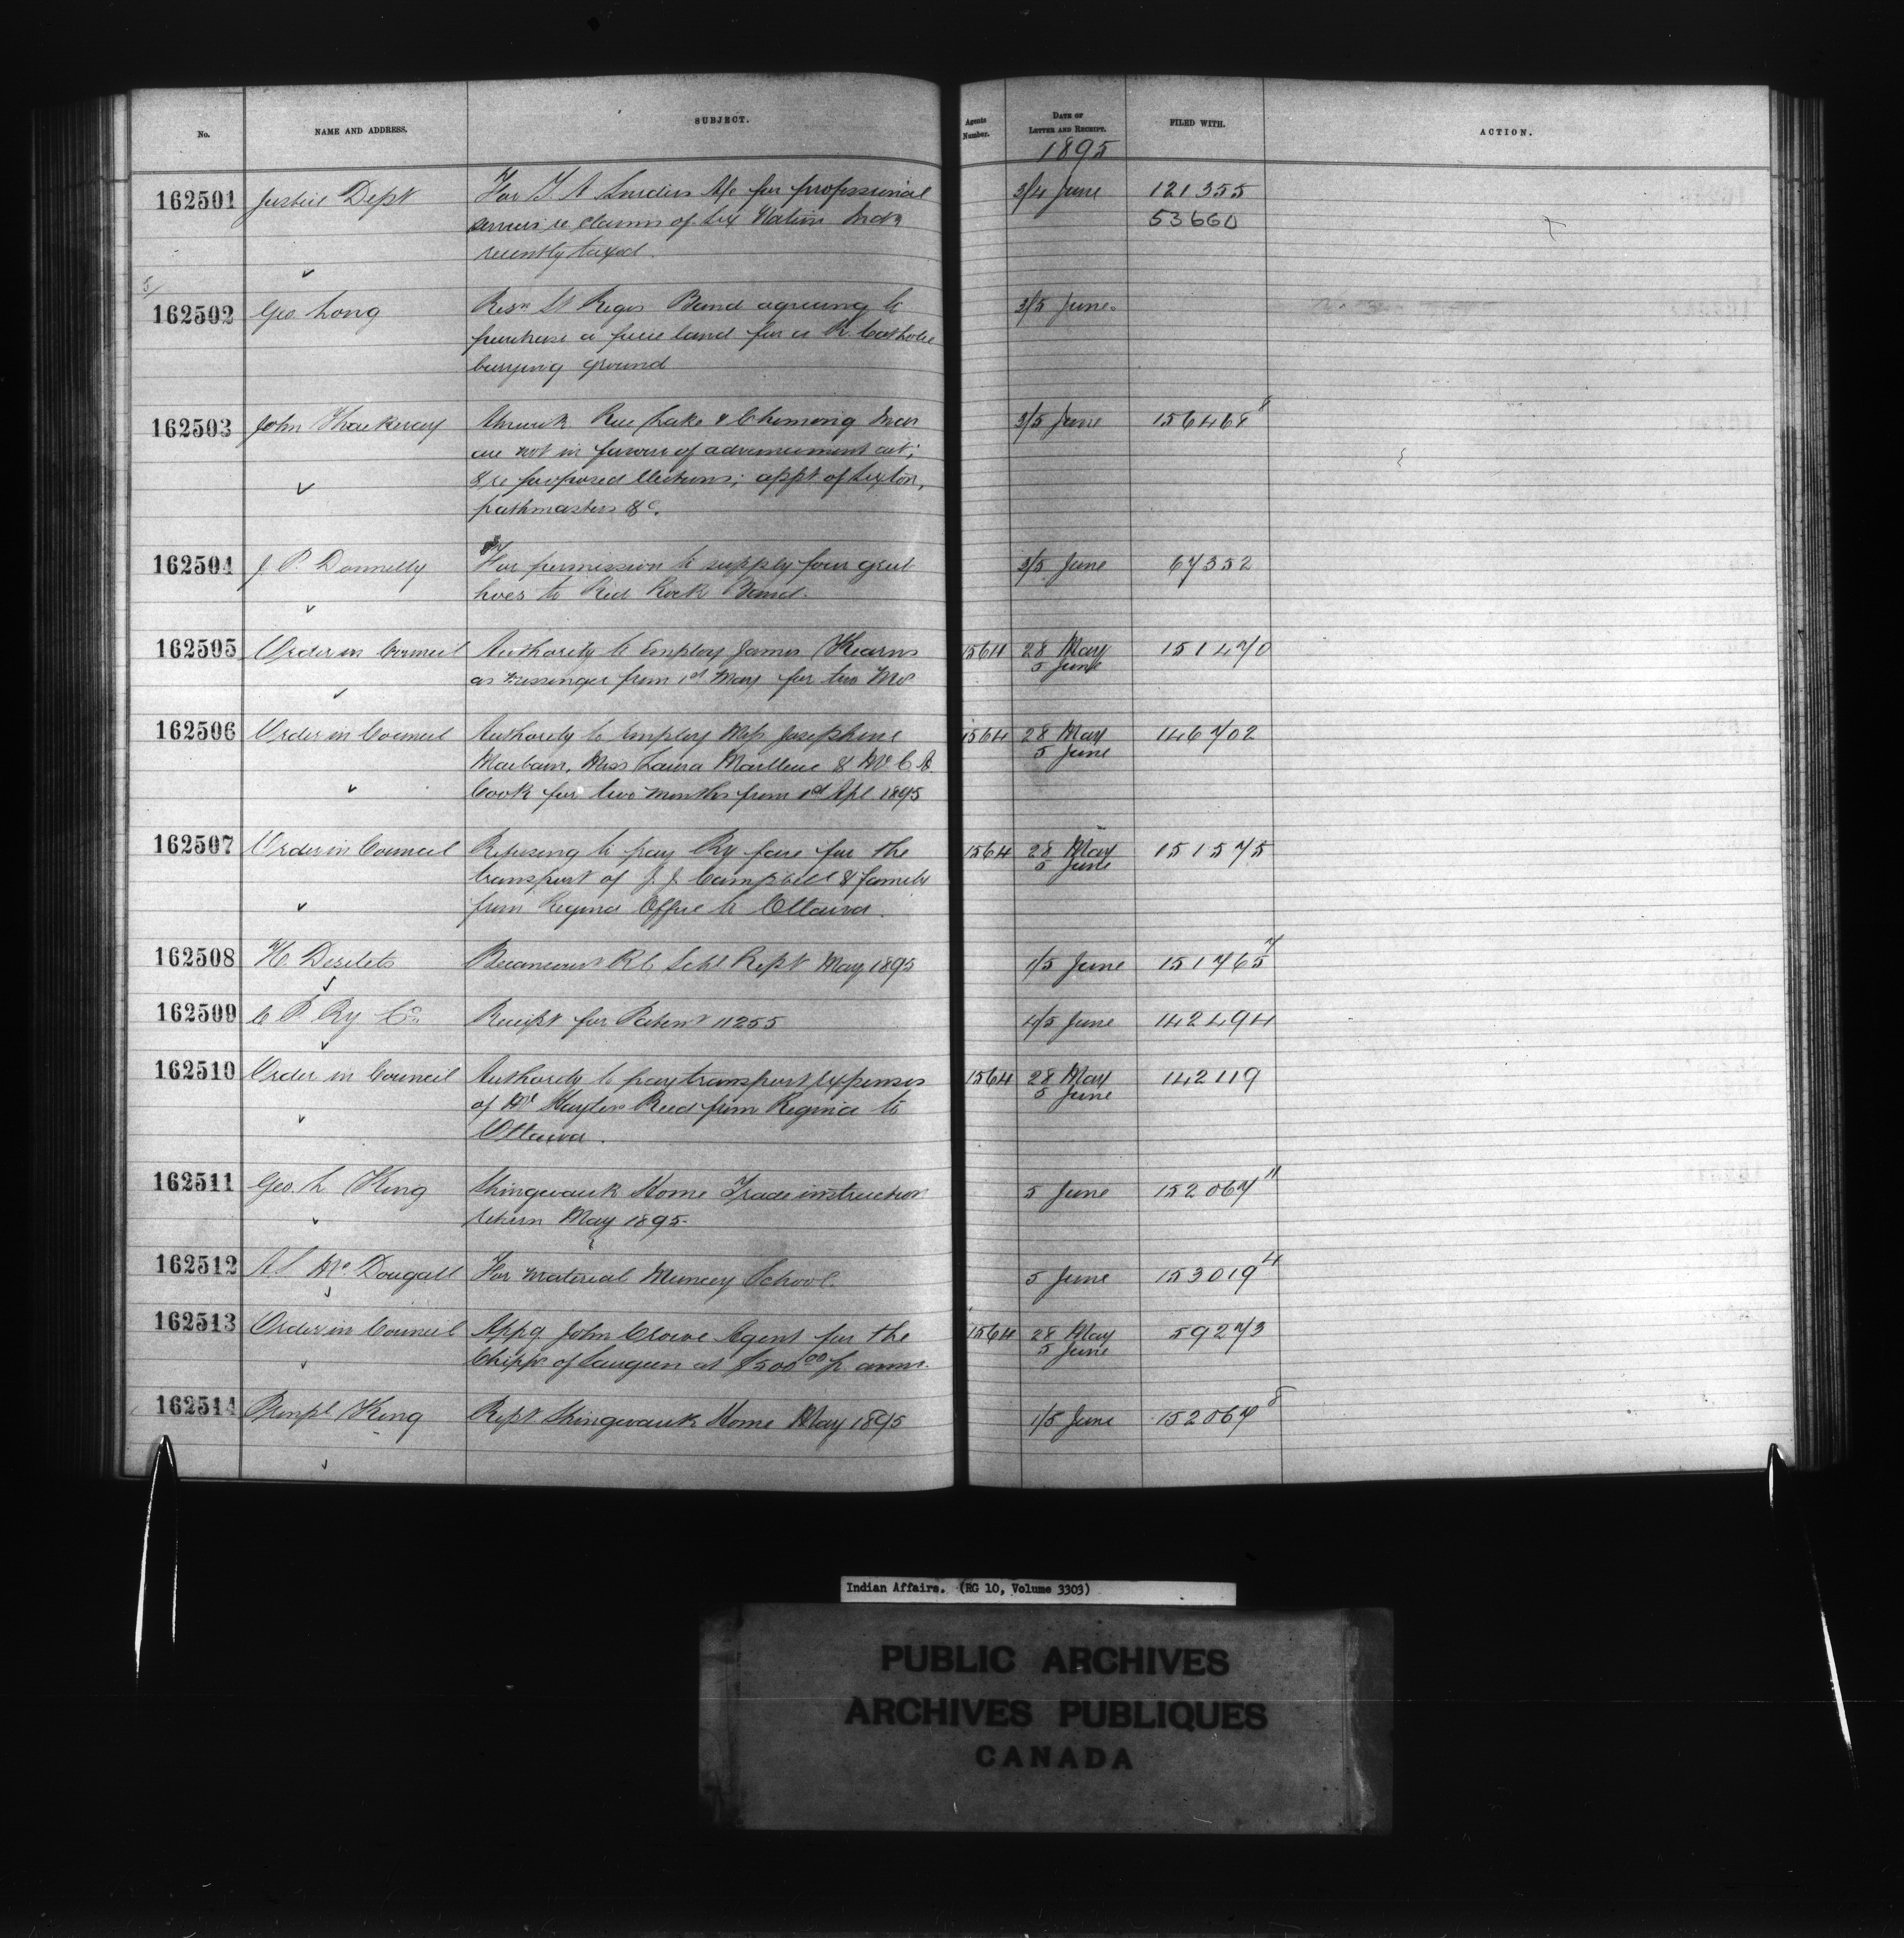 No. NAME AND ADDRESS. SUBJECT. Agents Number. DATE OF LETTER AND RECEIPT. FILED WITH. ACTION.
1895
162501 Justice Dept For T. A Snider a/c for professional 3/4 June 121355
services re claims of Six Nation Inds 53660
recently taxed.
162502 Geo. Long Resn St Regis Band agreeing to 3/5 June.
purchase a piece land for a R. Catholic
burying ground
162503 John Thackeray Alnwick Rice Lake & Chemong Inds 3/5 June 156468 8
are not in favour of advancement act;
& re proposed elections; appt of Sexton,
pathmasters &c.
162504 J. P. Donnelly For permission to supply four grub 3/5 June 67352
hoes to Red Rock Band.
162505 Order in Council Authority to employ James Kearns 1564 28 May 151470
as messenger from 1st May for two Mos 5 June
162506 Order in Council Authority to employ Miss Josephine 1564 28 May 146702
Miss Laura & Mr C A 5 June
Cook for two months from 1st Apl 1895
162507 Order in Council Refusing to pay Ry fare for the 1564 28 May 151575
transport of J. J. Campbell & family 5 June
from Regina Office to Ottawa.
162508 H. Desilets Becancourt R C Schl Rept May 1895 1/5 June 151765 7
162509 C P Ry Co. Receipt for Patent 11255 4/5 June 142494
162510 Order in Council Authority to pay transport expenses 1564 28 May 142119
of Mr Hayter Reed from Regina to 5 June
Ottawa.
162511 Geo. L King Shingwauk Home Trade instruction 5 June 152067 11
return May 1895.
162512 A S McDougall For material Muncey School 5 June 153019 4
162513 Order in Council Appg John Crowe Agent for the 1564 28 May 59273
Chipps of Saugeen at $500 00 p. annm. 5 June
162514 Prinpl King Rept Shingwauk Home May 1895 1/5 June 152067 8
Indian Affairs. (RG 10, Volume 3303)
PUBLIC ARCHIVES
ARCHIVES PUBLIQUES
CANADA